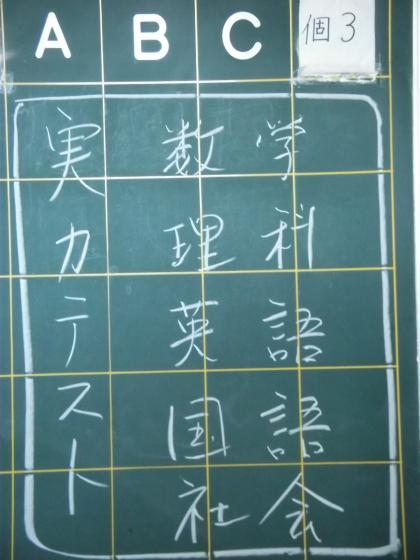 A B C 個3
実力テスト
数学
理科
英語
国語
社会